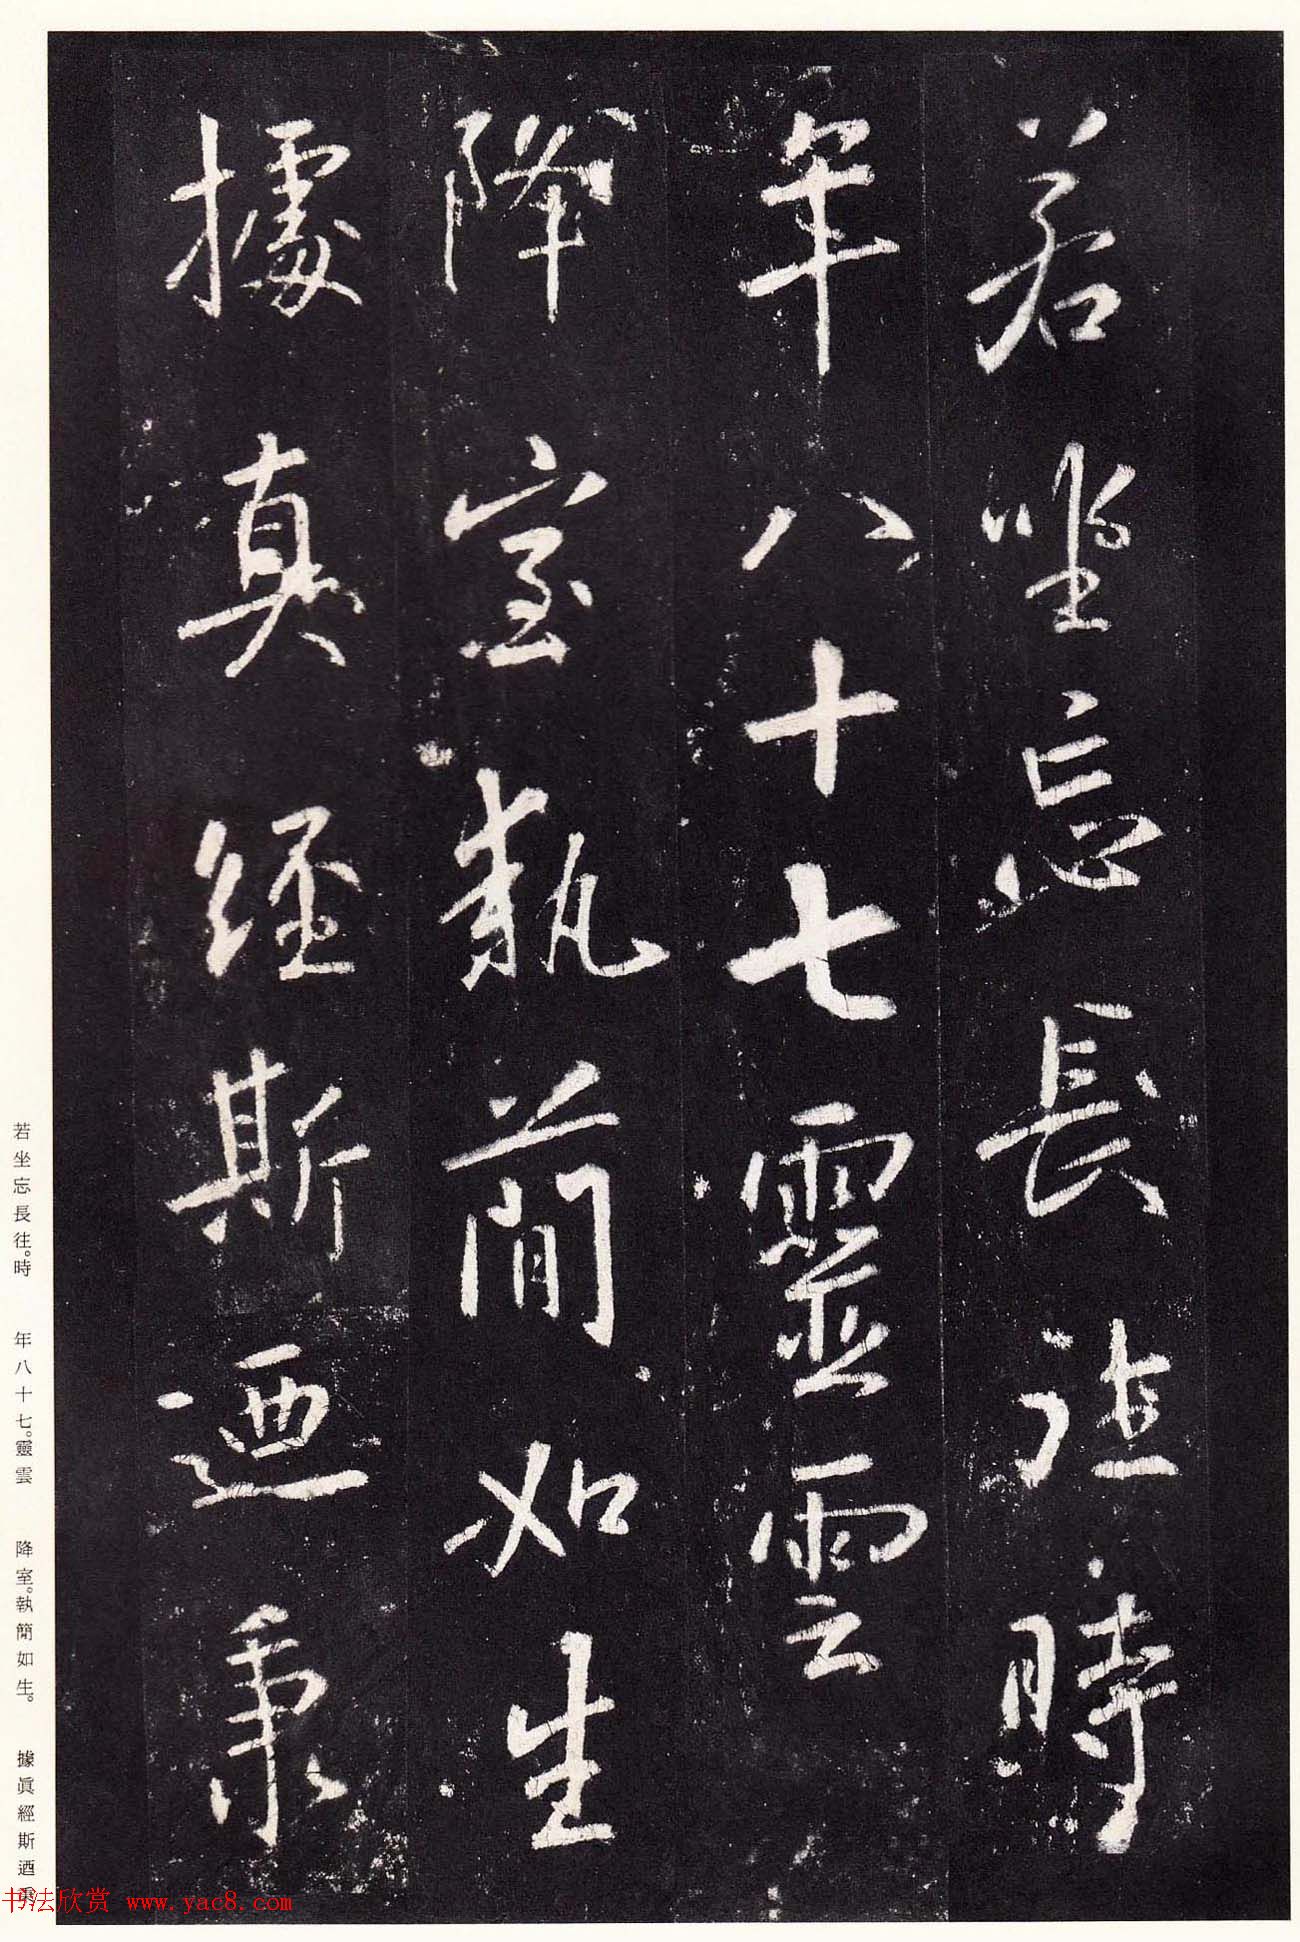 若坐忘長往時
年八十七靈雲
降室執簡如生
據真經斯迺秉
若坐忘長往。時 年八十七。靈雲 降室。執簡如生。 據眞經斯迺秉
书法欣赏 www.yac8.com